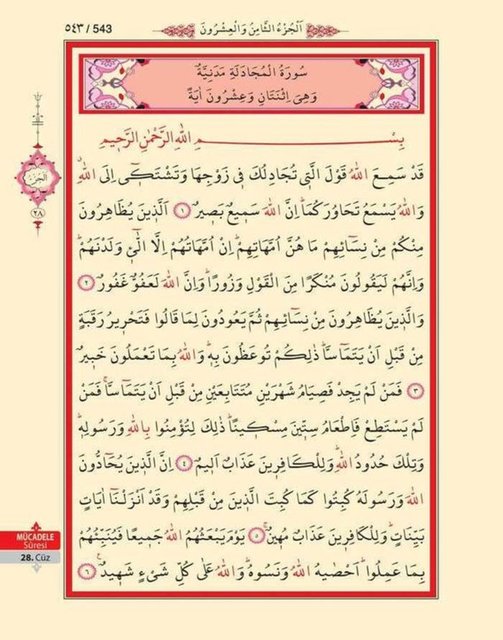 ٥٤٣ / 543
اَلْجُزْءُ الثَّامِنُ وَالْعِشْرُونَ
سُورَةُ الْمُجَادَلَةِ مَدَنِيَّةٌ
وَهِىَ اِثْنَتَانِ وَعِشْرُونَ اٰيَةً
بِسْمِ اللّٰهِ الرَّحْمٰنِ الرَّحِيمِ
قَدْ سَمِعَ اللّٰهُ قَوْلَ الَّتِى تُجَادِلُكَ فِى زَوْجِهَا وَتَشْتَكٖٓى اِلَى اللّٰهِۗ
وَاللّٰهُ يَسْمَعُ تَحَاوُرَكُمَاۜ اِنَّ اللّٰهَ سَمٖيعٌ بَصٖيرٌ ﴿١﴾ اَلَّذٖينَ يُظَاهِرُونَ
مِنْكُمْ مِنْ نِسَٓائِهِمْ مَا هُنَّ اُمَّهَاتِهِمْۜ اِنْ اُمَّهَاتُهُمْ اِلَّا الّٰٓـٖٔى وَلَدْنَهُمْۜ
وَاِنَّهُمْ لَيَقُولُونَ مُنْكَرًا مِنَ الْقَوْلِ وَزُورًاۜ وَاِنَّ اللّٰهَ لَعَفُوٌّ غَفُورٌ ﴿٢﴾
وَالَّذٖينَ يُظَاهِرُونَ مِنْ نِسَٓائِهِمْ ثُمَّ يَعُودُونَ لِمَا قَالُوا فَتَحْرٖيرُ رَقَبَةٍ
مِنْ قَبْلِ اَنْ يَتَمَٓاسَّاۜ ذٰلِكُمْ تُوعَظُونَ بِهٖۜ وَاللّٰهُ بِمَا تَعْمَلُونَ خَبٖيرٌ
﴿٣﴾ فَمَنْ لَمْ يَجِدْ فَصِيَامُ شَهْرَيْنِ مُتَتَابِعَيْنِ مِنْ قَبْلِ اَنْ يَتَمَٓاسَّاۚ فَمَنْ
لَمْ يَسْتَطِعْ فَاِطْعَامُ سِتّٖينَ مِسْكٖينًاۜ ذٰلِكَ لِتُؤْمِنُوا بِاللّٰهِ وَرَسُولِهٖۜ
وَتِلْكَ حُدُودُ اللّٰهِۜ وَلِلْكَافِرٖينَ عَذَابٌ اَلٖيمٌ ﴿٤﴾ اِنَّ الَّذٖينَ يُحَٓادُّونَ
اللّٰهَ وَرَسُولَهُ كُبِتُوا كَمَا كُبِتَ الَّذٖينَ مِنْ قَبْلِهِمْ وَقَدْ اَنْزَلْنَٓا اٰيَاتٍ
بَيِّنَاتٍۜ وَلِلْكَافِرٖينَ عَذَابٌ مُهٖينٌۚ ﴿٥﴾ يَوْمَ يَبْعَثُهُمُ اللّٰهُ جَمٖيعًا فَيُنَبِّئُهُمْ
بِمَا عَمِلُواۜ اَحْصٰيهُ اللّٰهُ وَنَسُوهُۜ وَاللّٰهُ عَلٰى كُلِّ شَىْءٍ شَهٖيدٌ۟ ﴿٦﴾
اَلْجُزْءُ
٢٨
MÜCADELE
Sûresi
28. Cüz